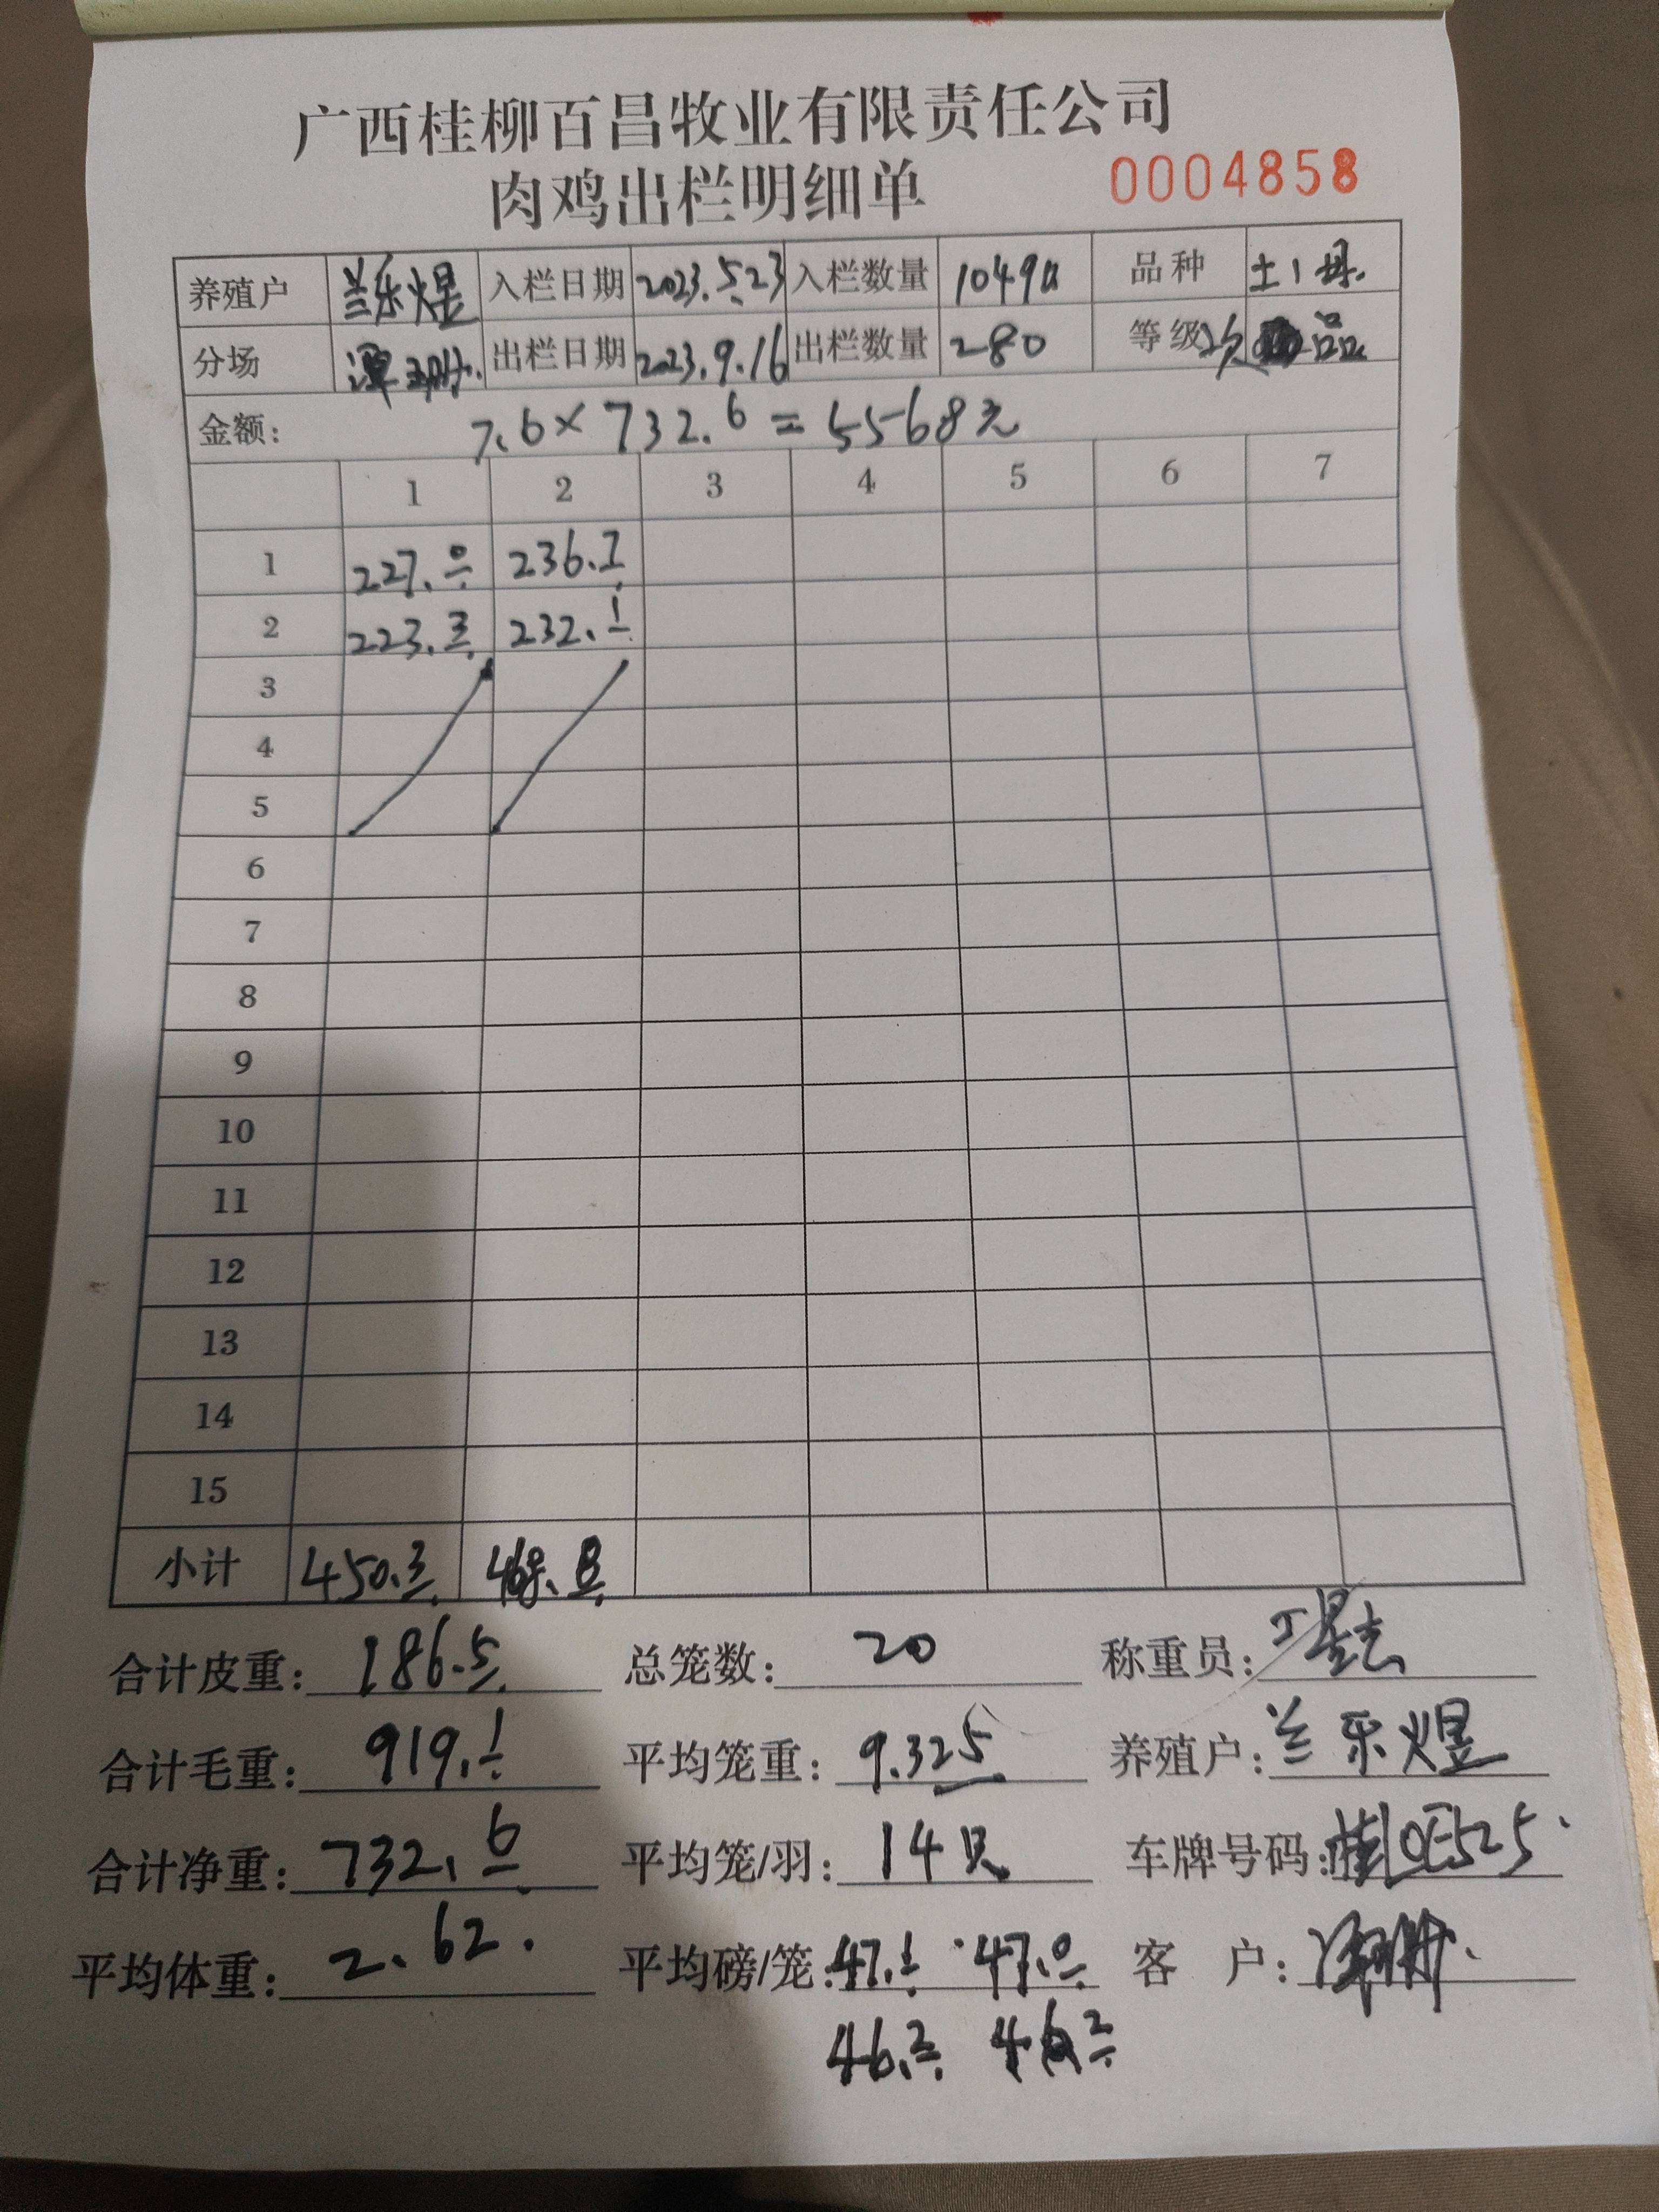 广西桂柳百昌牧业有限责任公司
肉鸡出栏明细单 0004858
养殖户 兰乐煜 入栏日期 2023.5.23 入栏数量 10490 品种 土1
分场 出栏日期 2023.9.16 出栏数量 280 等级 次品
金额: 7.6×732.6=5568元
1 2 3 4 5 6 7
1 227.0 236.7
2 223.3 232.1
3
4
5
6
7
8
9
10
11
12
13
14
15
小计 450.3 468.8
合计皮重: 186.5 总笼数: 20 称重员:
合计毛重: 919.1 平均笼重: 9.325 养殖户: 兰乐煜
合计净重: 732.6 平均笼/羽: 14只 车牌号码: 桂
平均体重: 2.62. 平均磅/笼: 47.1 47.0 客 户:
46.2 46.2